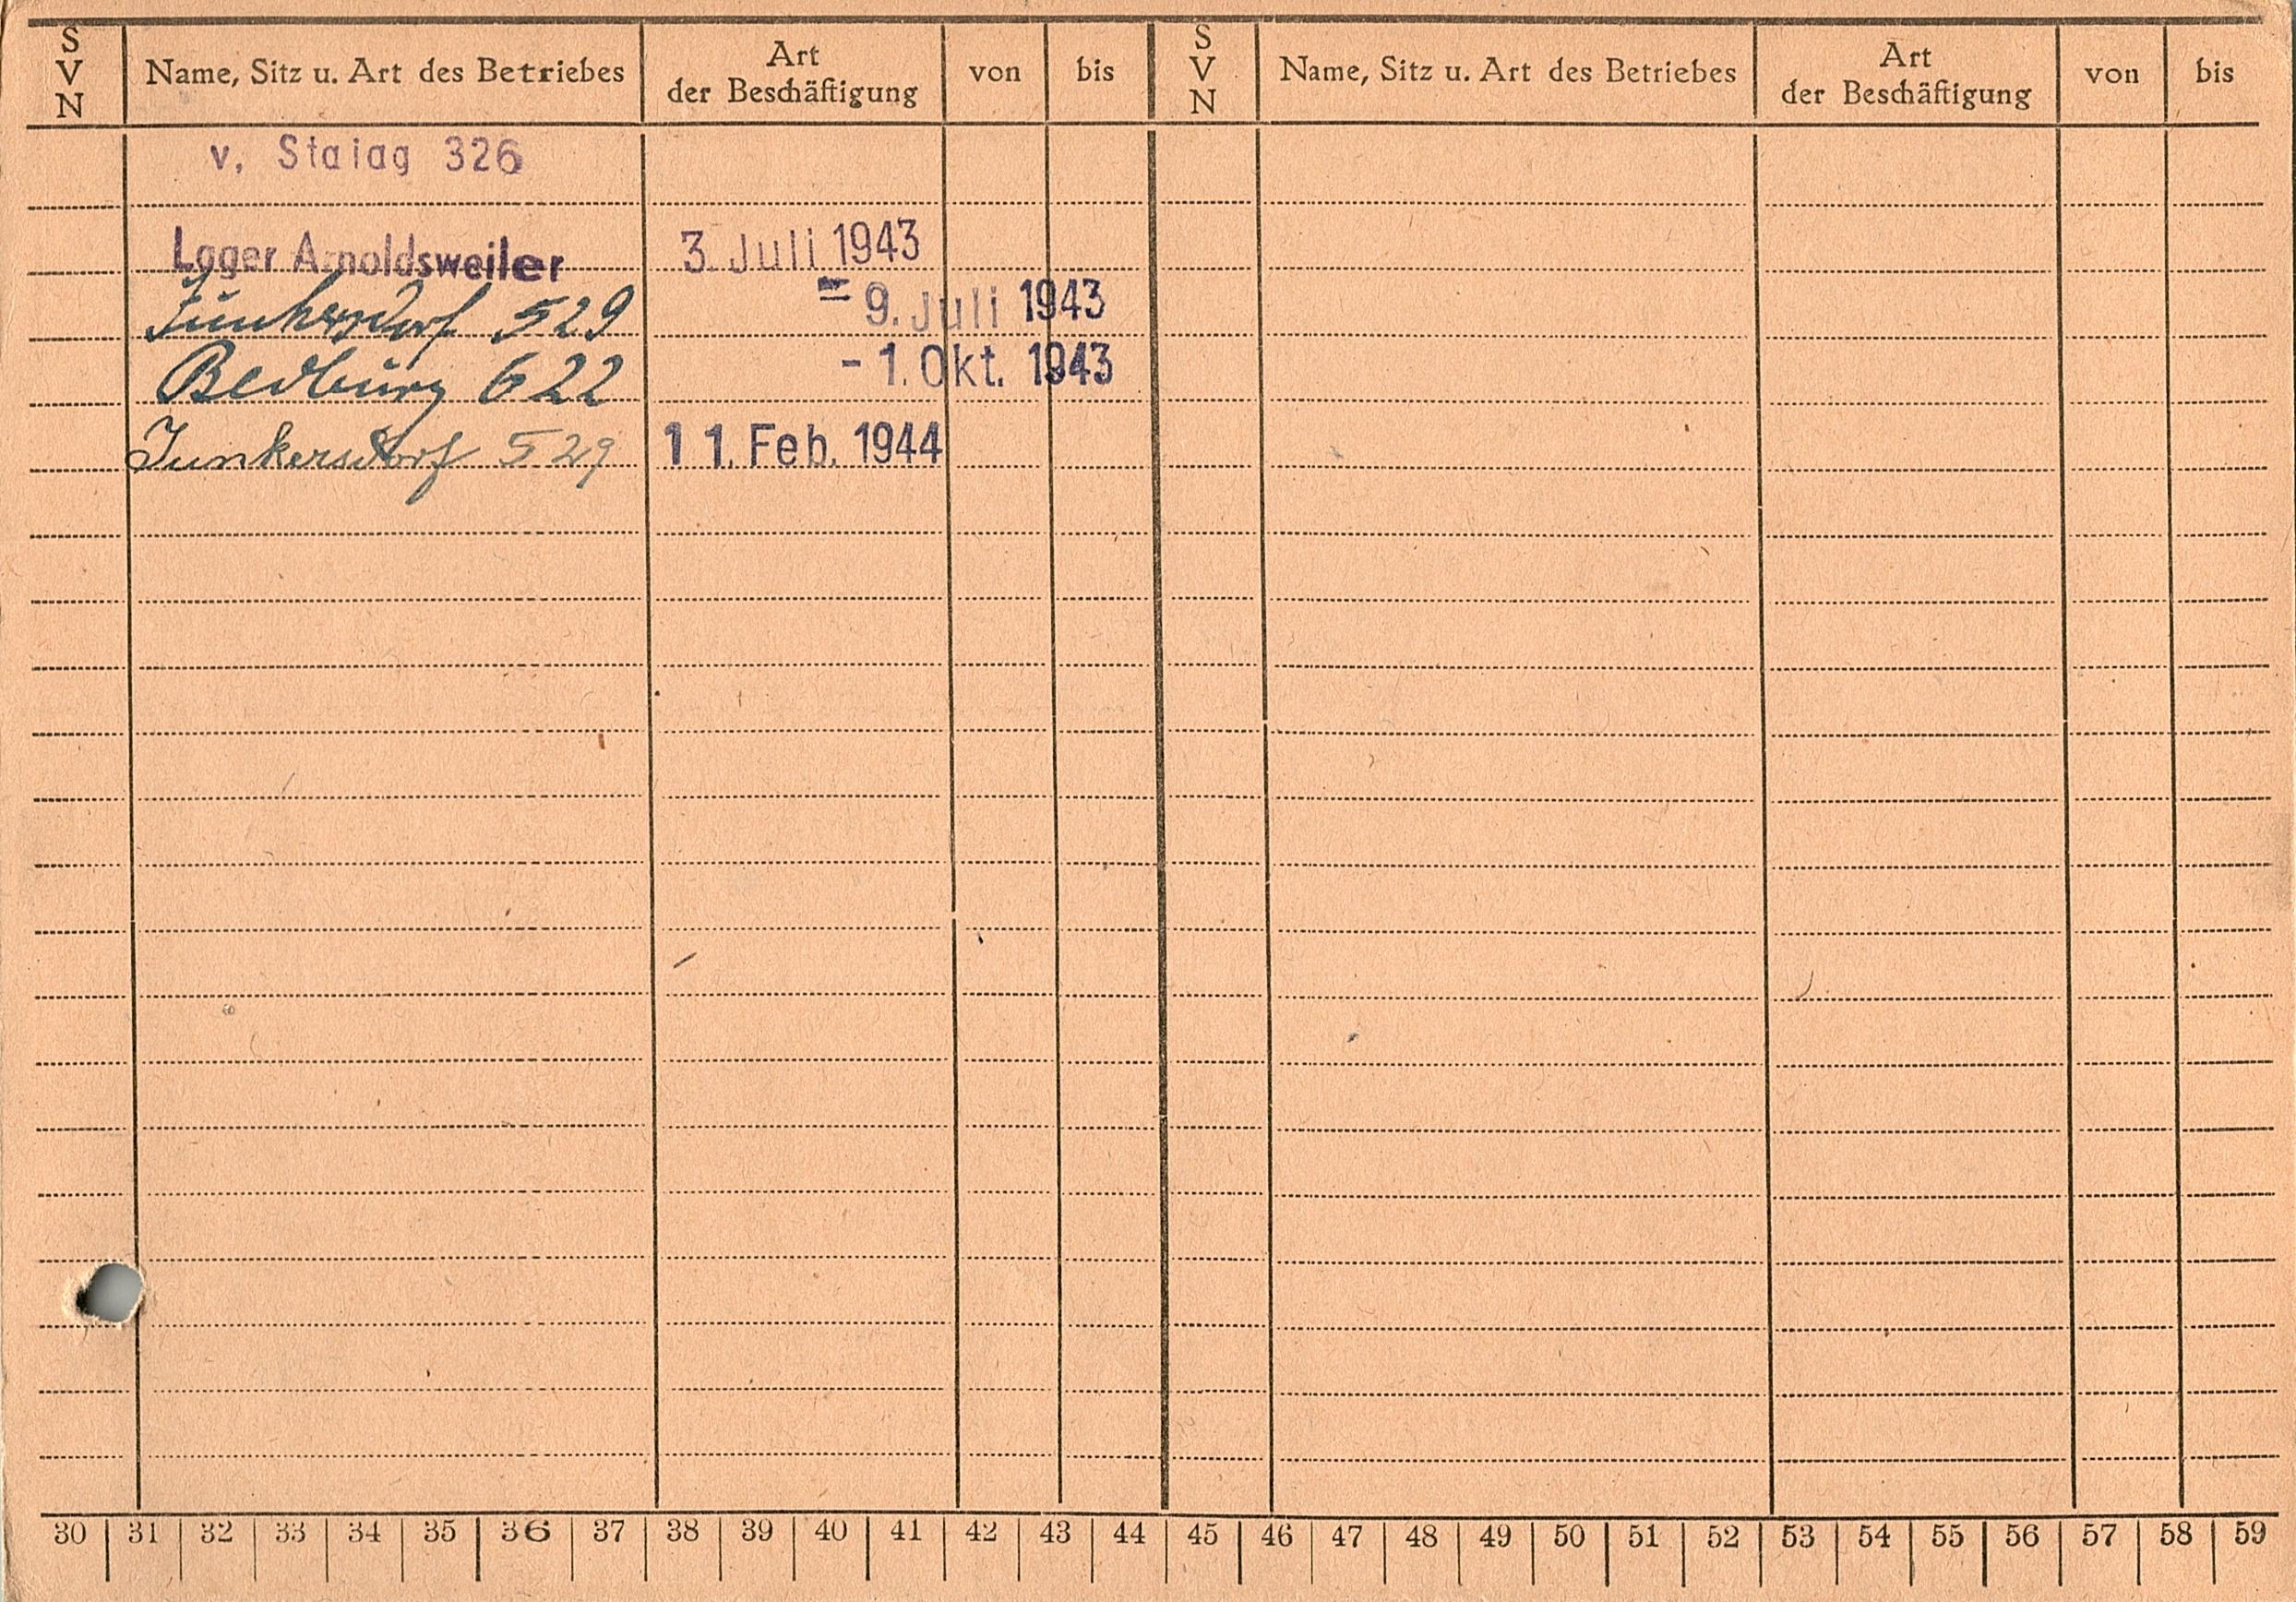 S V N Name, Sitz u. Art des Betriebes Art der Beschäftigung von bis S V N Name, Sitz u. Art des Betriebes Art der Beschäftigung von bis
v. Stalag 326
Lager Arnoldsweiler 3. Juli 1943
Junkersdorf 529 = 9. Juli 1943
Bedburg 622 - 1. Okt. 1943
Junkersdorf 529 11. Feb. 1944
30 31 32 33 34 35 36 37 38 39 40 41 42 43 44 45 46 47 48 49 50 51 52 53 54 55 56 57 58 59